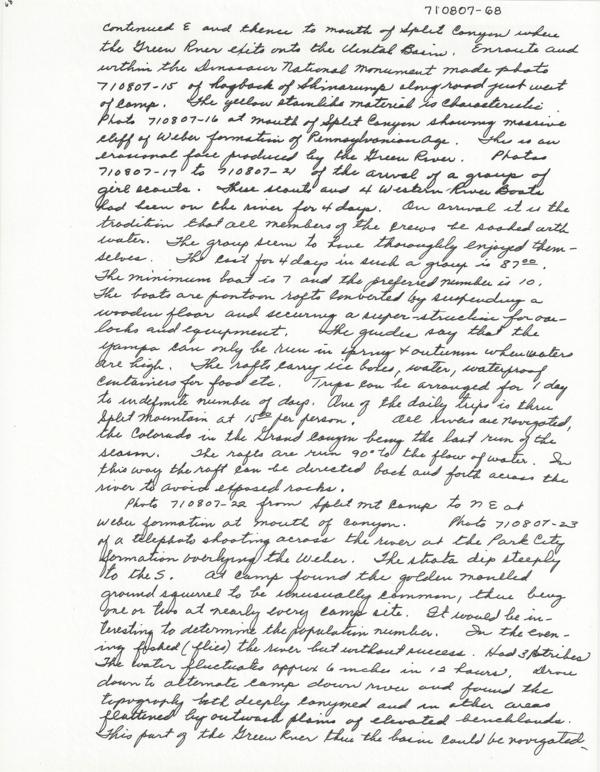 710807-68
continued E and thence to mouth of Split Canyon where
the Green River exits onto the Uintal Basin. Enroute and
within the Dinosaur National Monument made photo
710807-15 of hogback of Shinarump along road just west
of camp. The yellow stainlike material is characteristic.
Photo 710807-16 at mouth of Split Canyon showing massive
cliff of Weber formation of Pennsylvanian Age. This is an
erosional face produced by the Green River. Photos
710807-17 to 710807-21 of the arrival of a group of
girl scouts. These scouts and 4 Western River Boats
had been on the river for 4 days. On arrival it is the
tradition that all members of the crews be soaked with
water. The group seem to have thoroughly enjoyed them-
selves. The cost for 4 days in such a group is 87⁰⁰.
The minimum boat is 7 and the preferred number is 10.
The boats are pontoon rafts converted by suspending a
wooden floor and securing a super-structure for oar-
locks and equipment. The guides say that the
Yampa can only be run in spring & autumn when waters
are high. The rafts carry ice boxes, water, waterproof
containers for food etc. Trips can be arranged for 1 day
to indefinite number of days. One of the daily trips is thru
Split Mountain at 15⁰⁰ per person. All rivers are navigated,
the Colorado in the Grand Canyon being the last run of the
season. The rafts are run 90° to the flow of water. In
this way the raft can be directed back and forth across the
river to avoid exposed rocks.
Photo 710807-22 from Split Mt Camp to NE at
Weber formation at mouth of canyon. Photo 710807-23
of a telephoto shooting across the river at the Park City
formation overlying the Weber. The strata dip steeply
to the S. At camp found the golden mantled
ground squirrel to be unusually common, there being
one or two at nearly every camp site. It would be in-
teresting to determine the population number. In the even-
ing fished (flies) the river but without success. Had 3 strikes
The water fluctuates approx 6 inches in 12 hours. Drove
down to alternate camp down river and found the
topography both deeply canyoned and in other areas
flattened by outwash plains of elevated benchlands.
This part of the Green River thru the basin could be navigated-